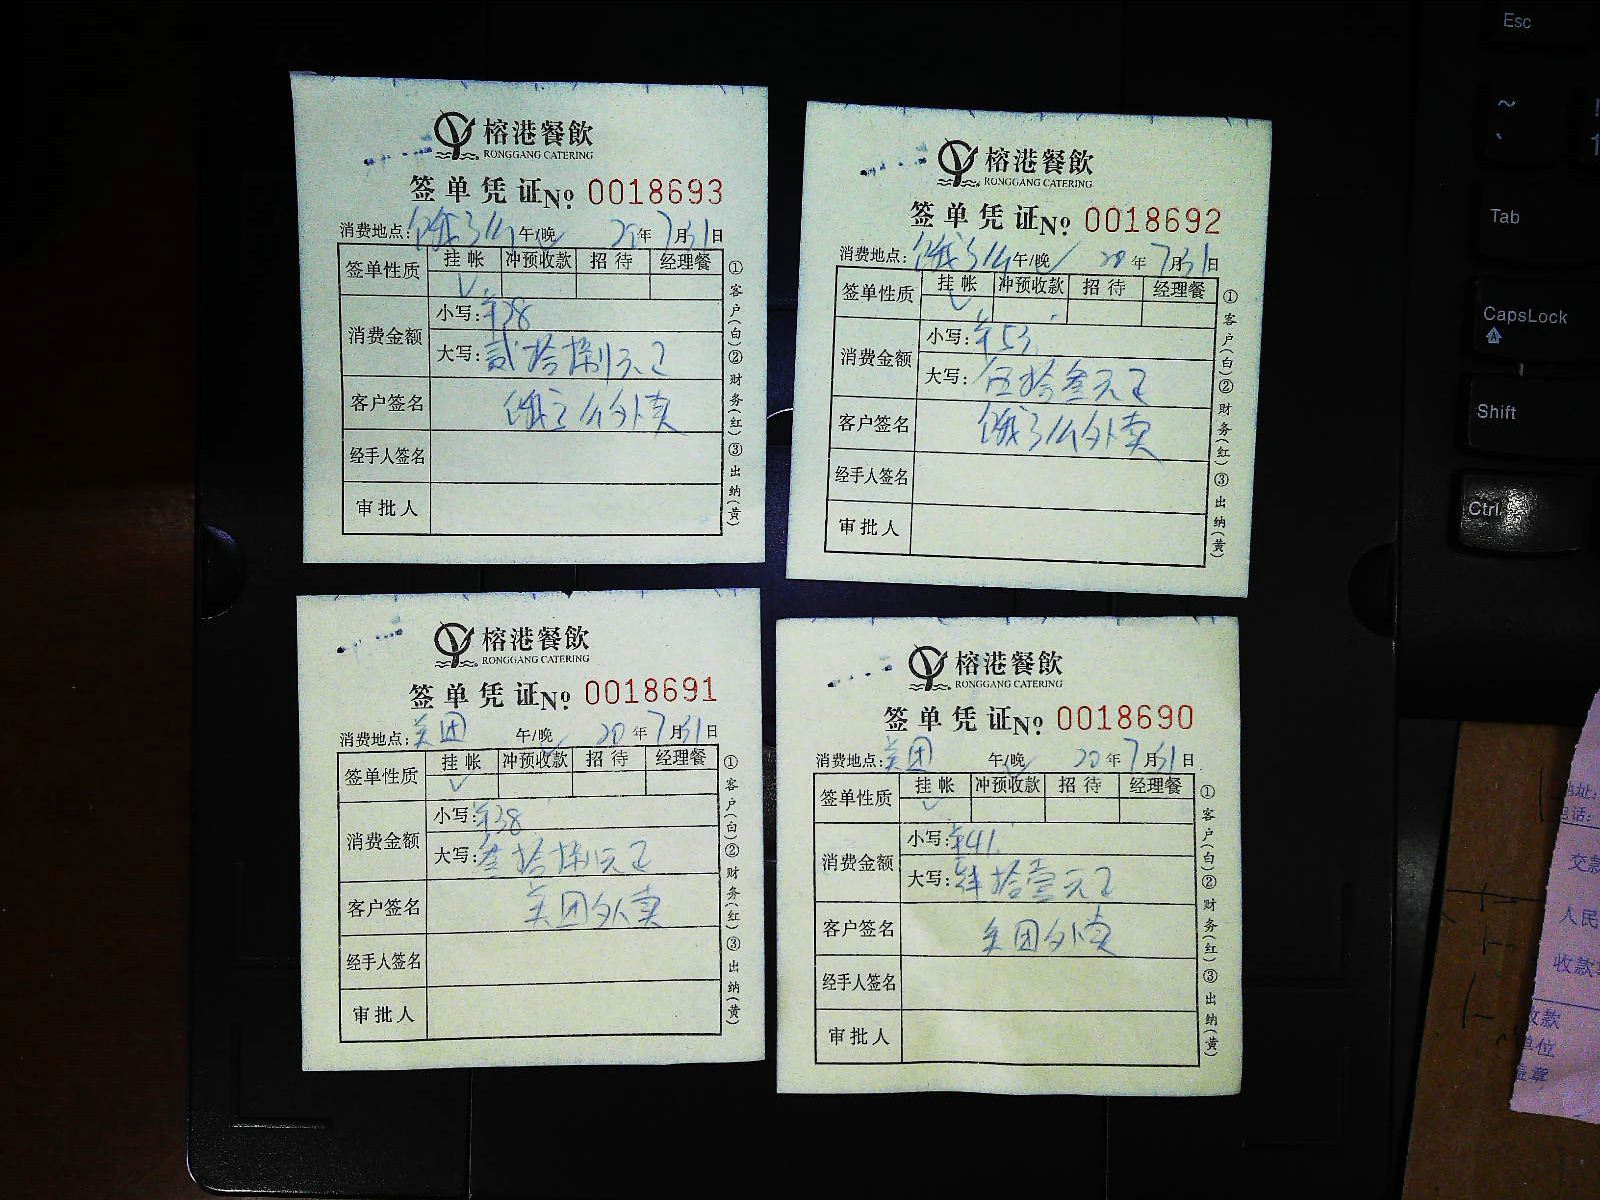 榕港餐飲
RONGGANG CATERING
签单凭证№ 0018693
消费地点: 饿了么 午/晚 20年7月31日
签单性质 挂帐 冲预收款 招待 经理餐
消费金额 小写: ¥28
大写: 贰拾捌元正
客户签名 饿了么外卖
经手人签名
审批人
①客户(白)②财务(红)③出纳(黄)
榕港餐飲
RONGGANG CATERING
签单凭证№ 0018692
消费地点: 饿了么 午/晚 20年7月31日
签单性质 挂帐 冲预收款 招待 经理餐
消费金额 小写: ¥53
大写: 伍拾叁元正
客户签名 饿了么外卖
经手人签名
审批人
①客户(白)②财务(红)③出纳(黄)
榕港餐飲
RONGGANG CATERING
签单凭证№ 0018691
消费地点: 美团 午/晚 20年7月31日
签单性质 挂帐 冲预收款 招待 经理餐
消费金额 小写: ¥38
大写: 叁拾捌元正
客户签名 美团外卖
经手人签名
审批人
①客户(白)②财务(红)③出纳(黄)
榕港餐飲
RONGGANG CATERING
签单凭证№ 0018690
消费地点: 美团 午/晚 20年7月31日
签单性质 挂帐 冲预收款 招待 经理餐
消费金额 小写: ¥41
大写: 肆拾壹元正
客户签名 美团外卖
经手人签名
审批人
①客户(白)②财务(红)③出纳(黄)
Esc
~
Tab
CapsLock
Shift
Ctrl
地址:
电话:
交款
人民
收款
收款
单位
盖章